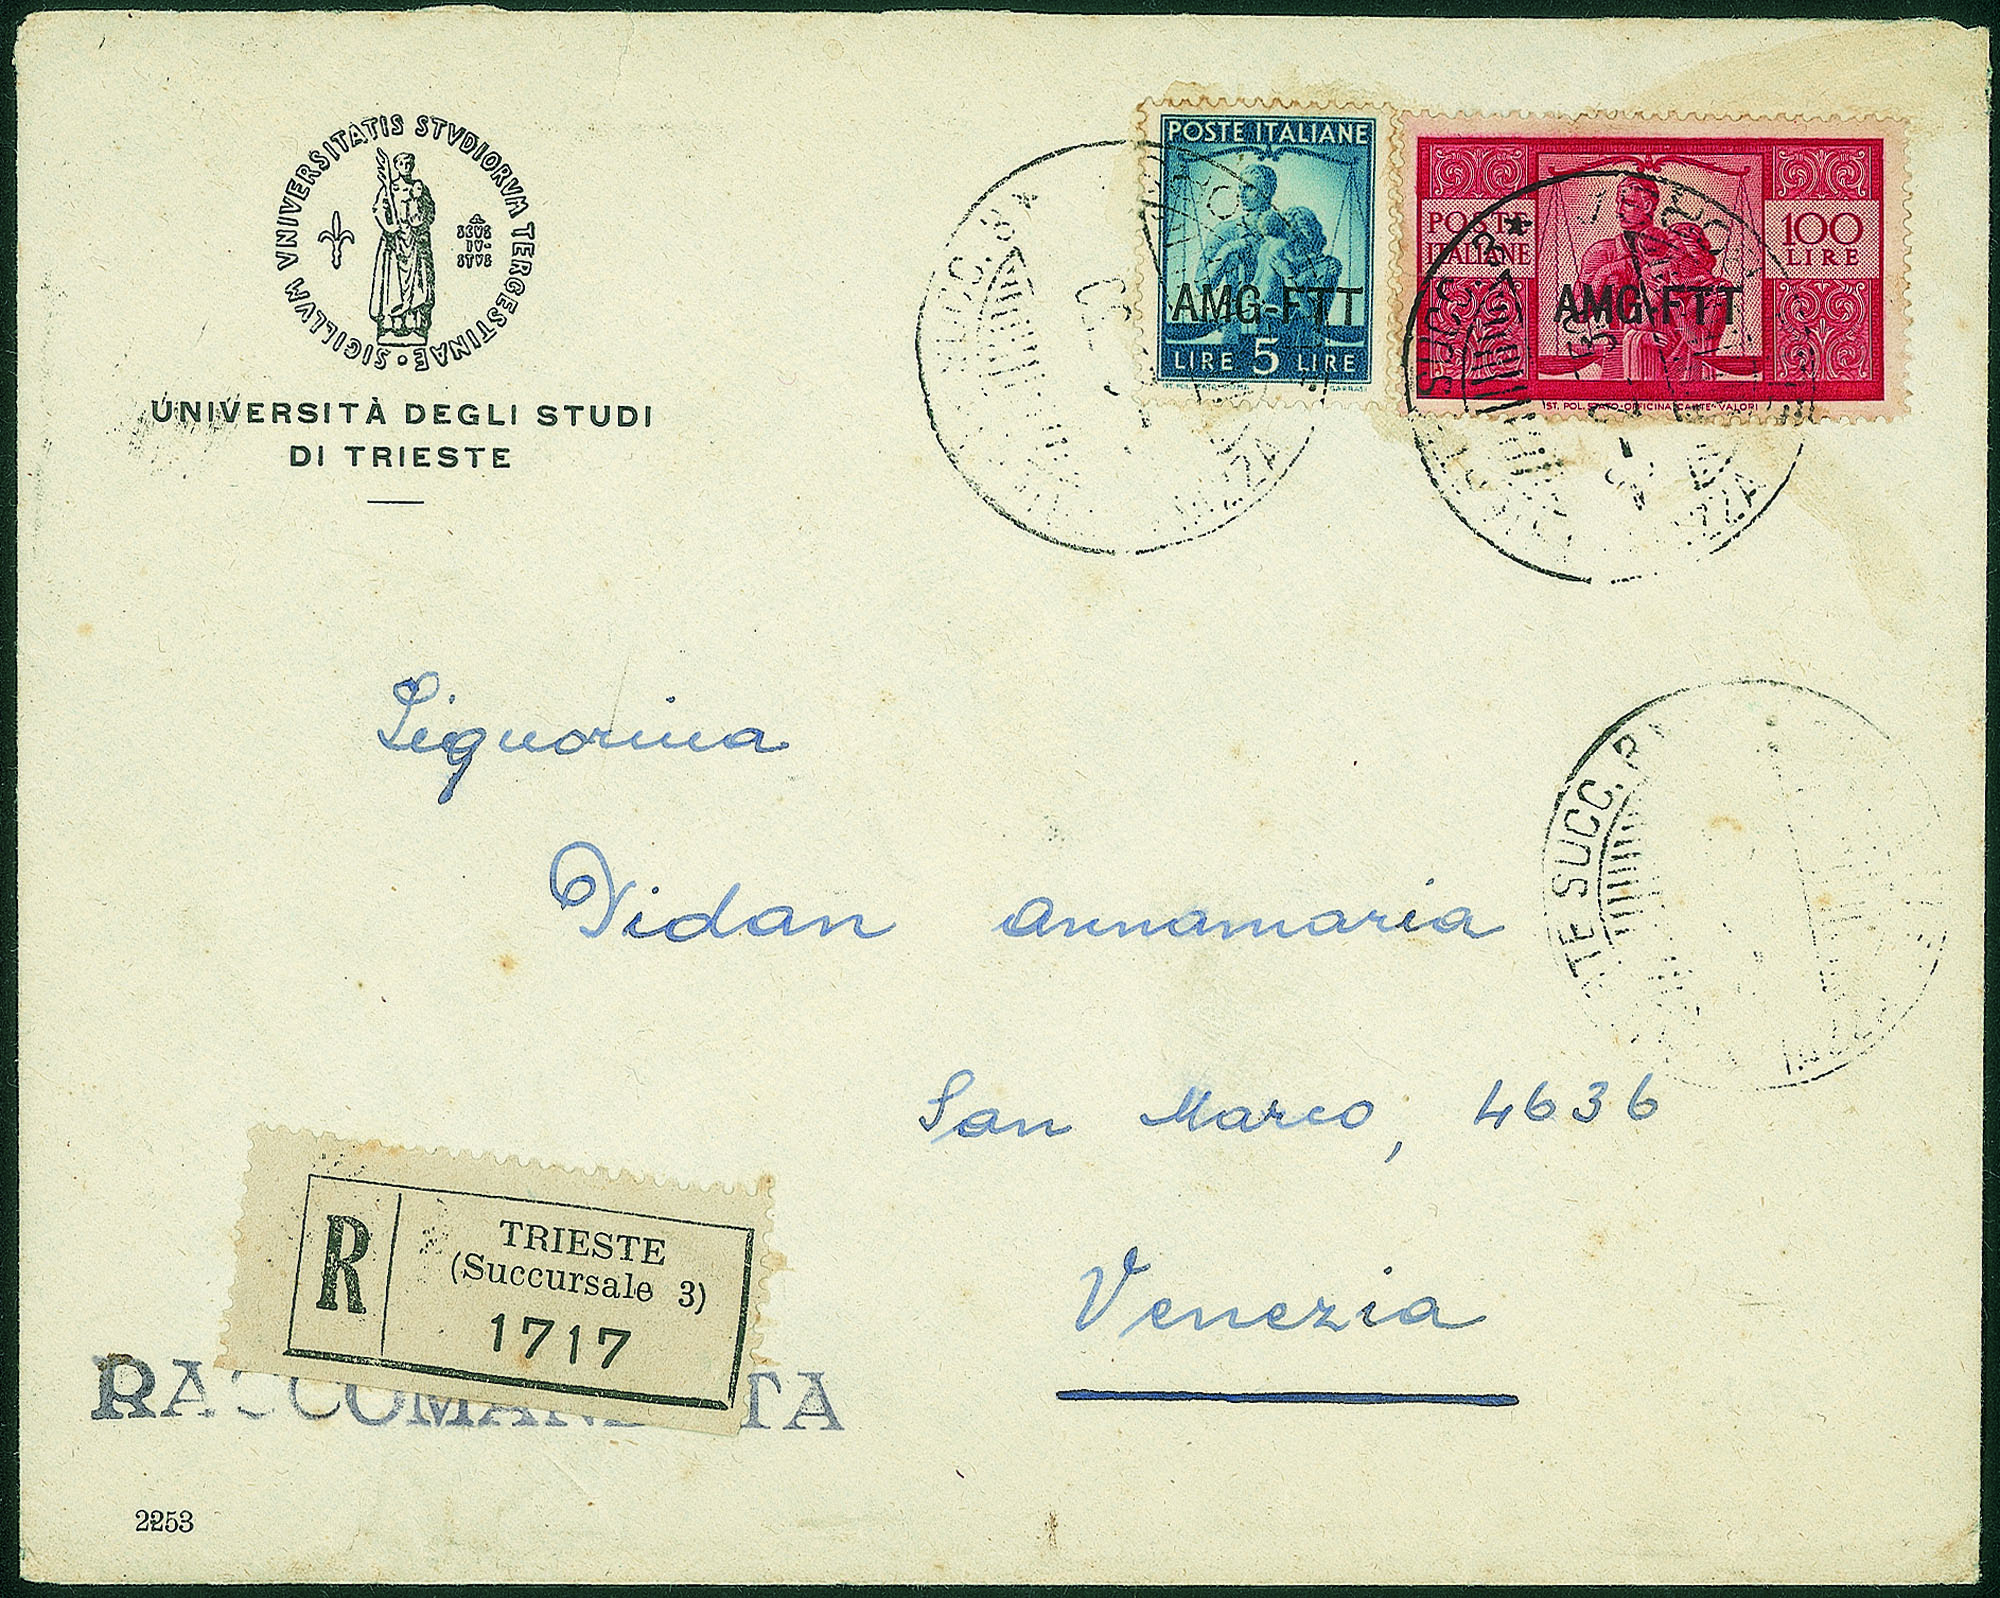 SIGILLVM VNIVERSITATIS STVDIORVM TERGESTINAE •
SCVS
IV-
STVS
UNIVERSITÀ DEGLI STUDI
DI TRIESTE
POSTE ITALIANE
AMG-FTT
LIRE 5 LIRE
POSTE
ITALIANE
100
LIRE
AMG-FTT
IST. POL. STATO-OFFICINA CARTE-VALORI
SUCC. 3*
SUCC. 3*
TE SUCC.
Signorina
Vidan Annamaria
San Marco, 4636
Venezia
R
TRIESTE
(Succursale 3)
1717
RACCOMANDATA
2253